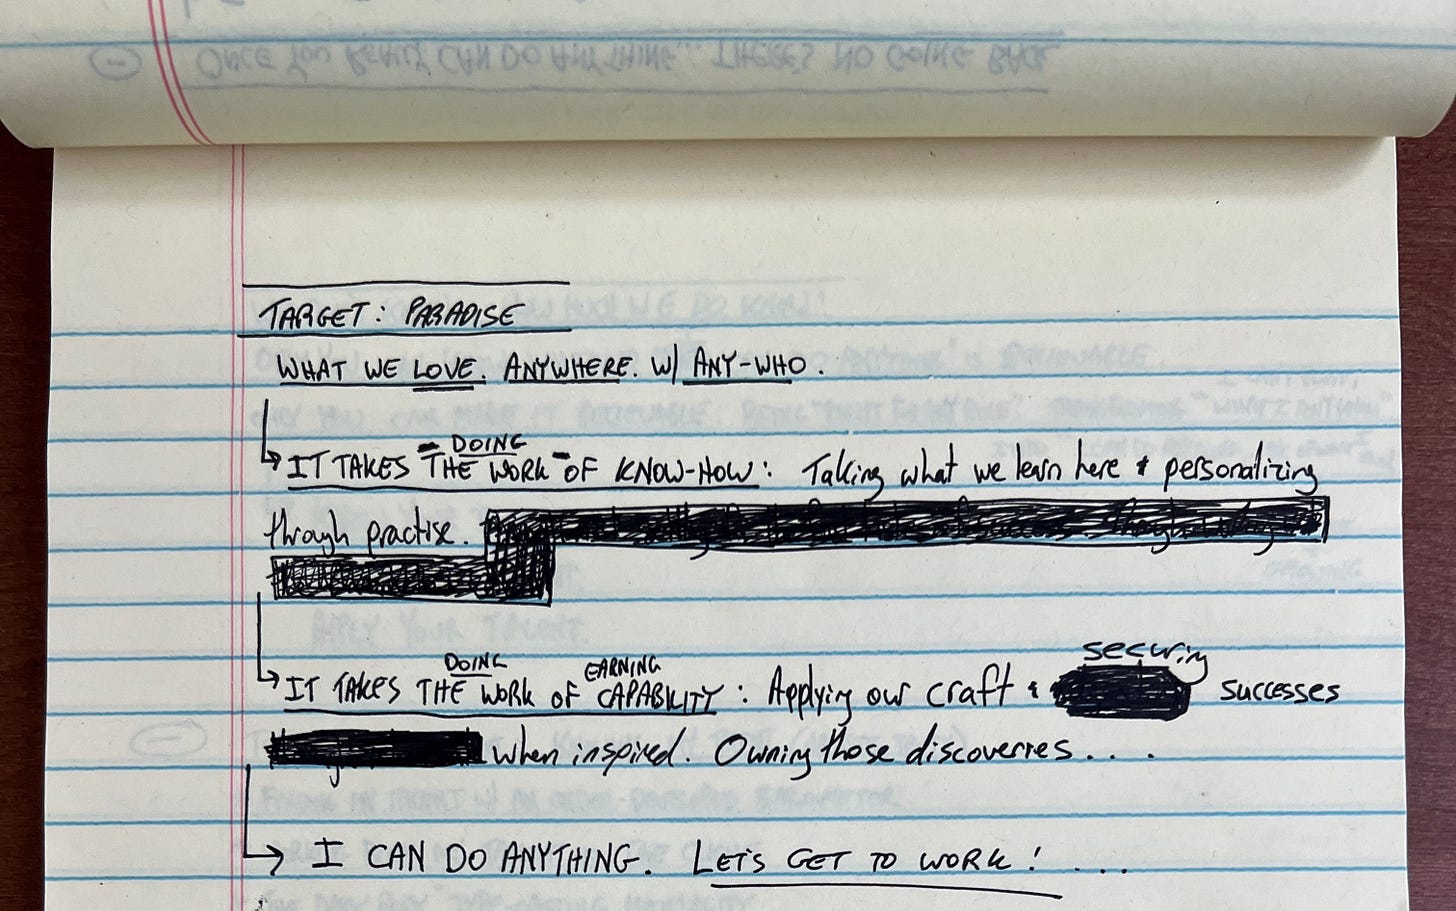 ONCE YOU REALLY CAN DO ANYTHING... THERE'S NO GOING BACK
TARGET: PARADISE
WHAT WE LOVE. ANYWHERE. W/ ANY-WHO.
DOING
IT TAKES THE WORK OF KNOW-HOW: Taking what we learn here & personalizing
through practise.
DOING EARNING
IT TAKES THE WORK OF CAPABILITY: Applying our craft &
securing
successes
when inspired. Owning those discoveries....
I CAN DO ANYTHING. LET'S GET TO WORK! ....